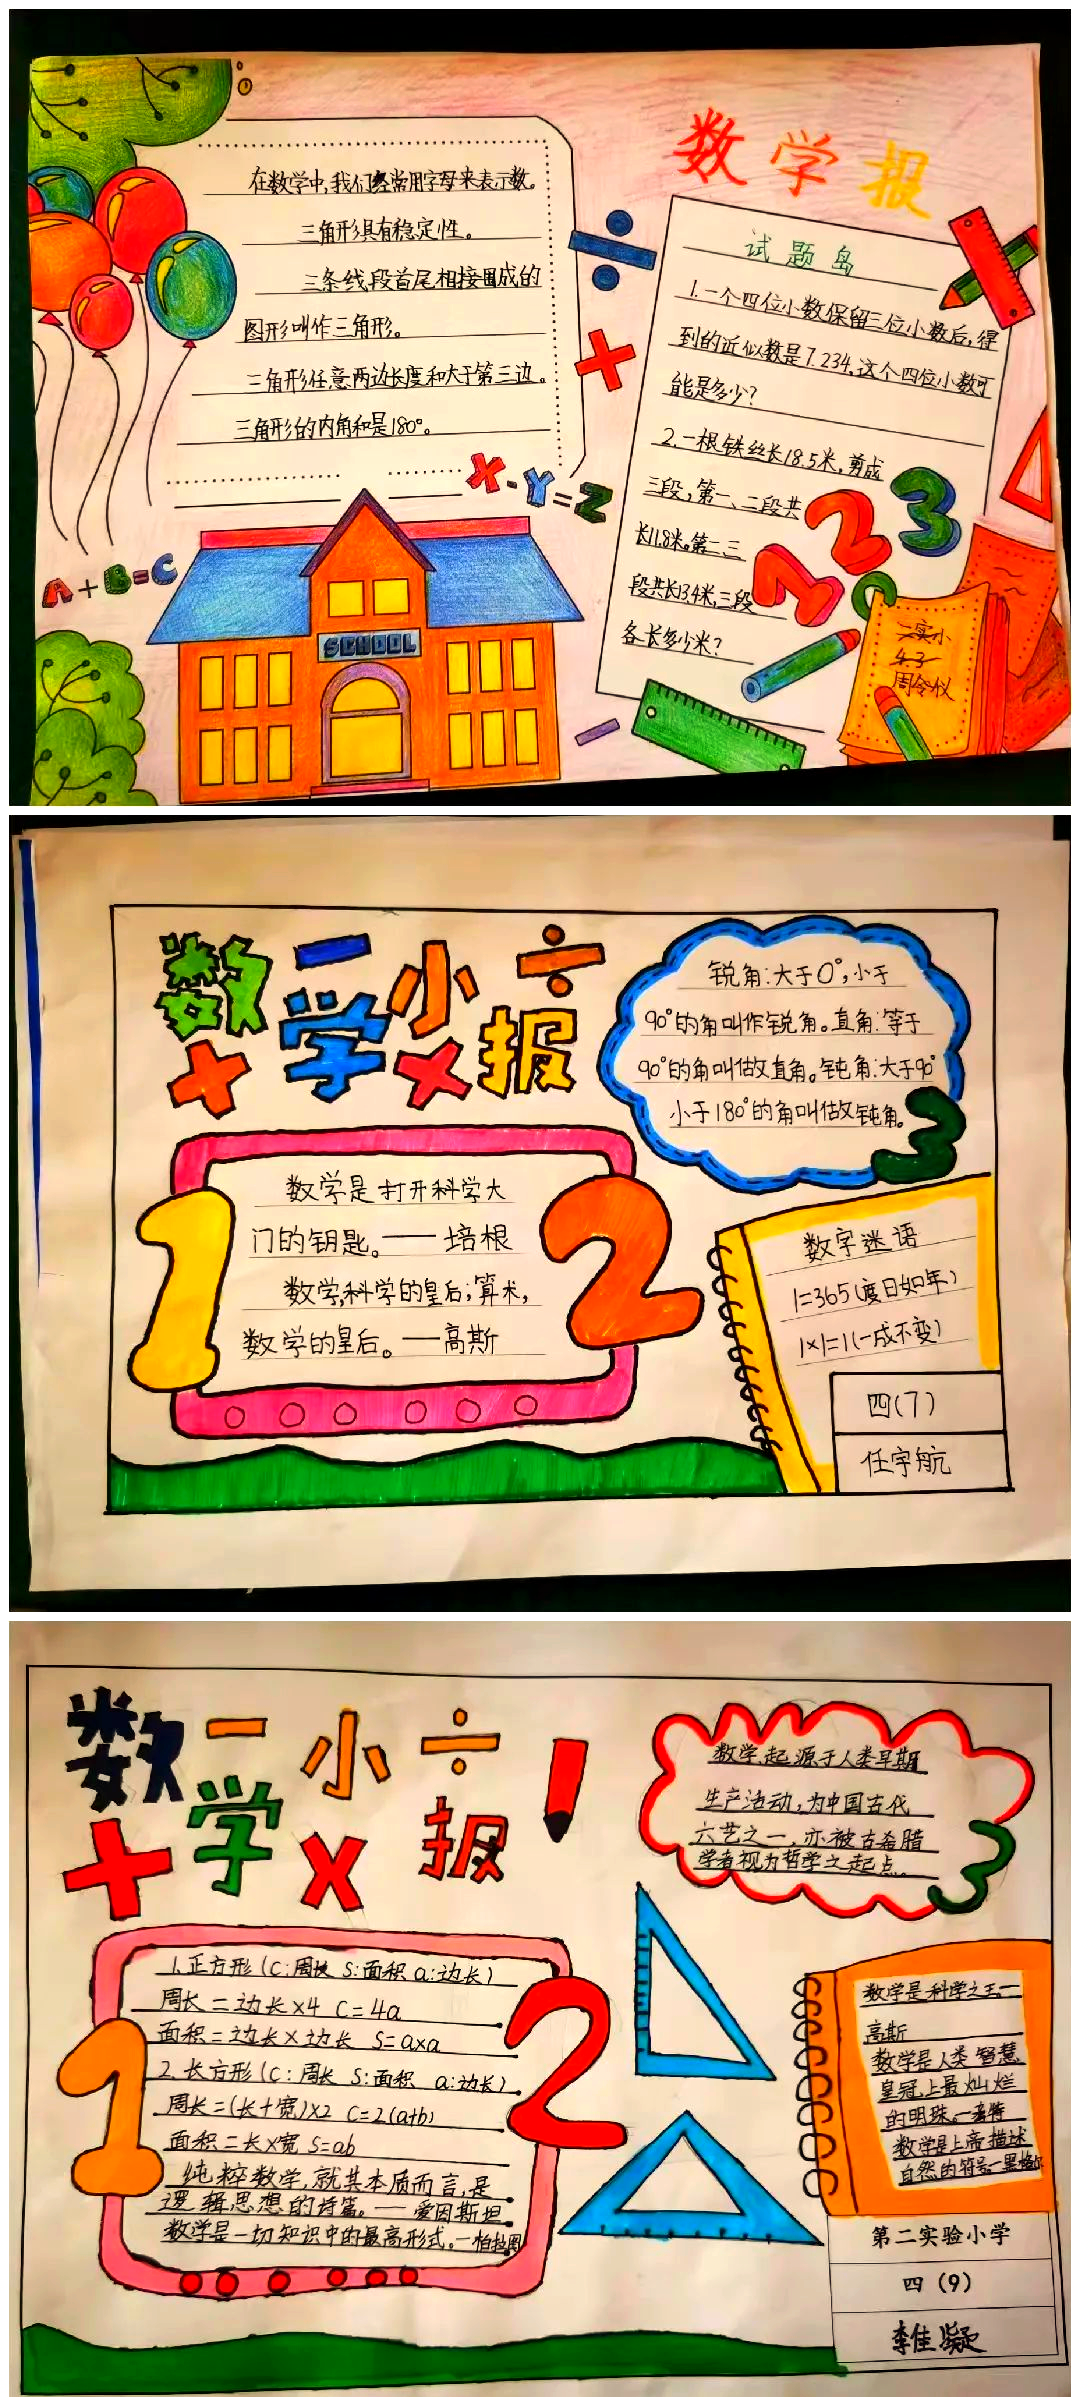 数学报
在数学中,我们经常用字母来表示数。
三角形具有稳定性。
三条线段首尾相接围成的
图形叫作三角形。
三角形任意两边长度和大于第三边。
三角形的内角和是180°。
X-Y=Z
A+B=C
SCHOOL
试题岛
1.一个四位小数保留三位小数后,得
到的近似数是7.234,这个四位小数可
能是多少?
2.一根铁丝长18.5米,剪成
三段,第一、二段共
长11.8米。第二三
段共长13.4米,三段
各长多少米?
1 2 3
二实小
4.3
周令仪
数学小报
锐角:大于0°,小于
90°的角叫作锐角。直角:等于
90°的角叫做直角。钝角:大于90°
小于180°的角叫做钝角。
3
数学是打开科学大
门的钥匙。——培根
数学,科学的皇后;算术,
数学的皇后。——高斯
1 2
数字迷语
1=365(度日如年)
1×1=1(一成不变)
四(7)
任宇航
数学小报
数学起源于人类早期
生产活动,为中国古代
六艺之一,亦被古希腊
学者视为哲学之起点。
3
1.正方形(C:周长 S:面积 a:边长)
周长=边长×4 C=4a
面积=边长×边长 S=a×a
2.长方形(C:周长 S:面积 a:边长)
周长=(长+宽)×2 C=2(a+b)
面积=长×宽 S=ab
纯粹数学,就其本质而言,是
逻辑思想的诗篇。——爱因斯坦
数学是一切知识中的最高形式。—柏拉图
1 2
数学是科学之王—
高斯
数学是人类智慧
皇冠上最灿烂
的明珠。—考特
数学是上帝描述
自然的符号—黑格尔
第二实验小学
四(9)
李佳凝